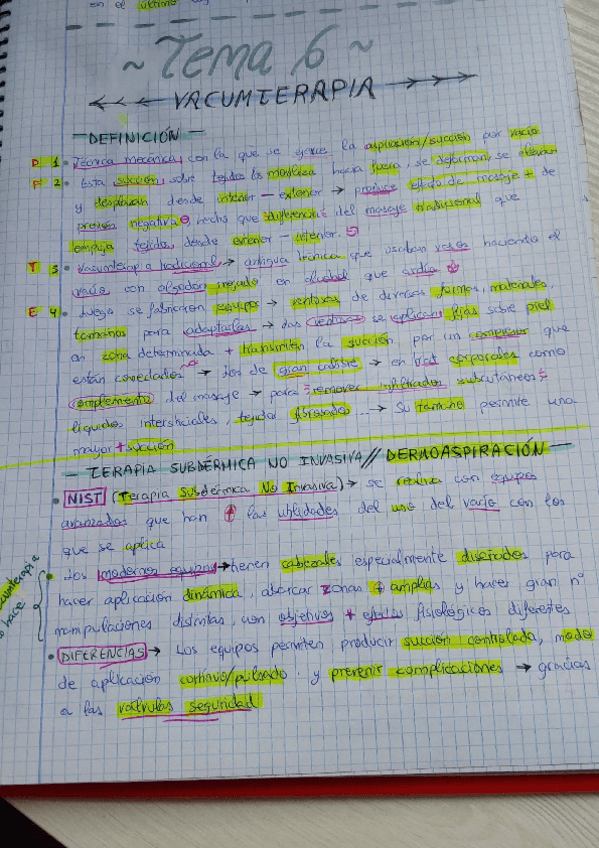 en el último
~ Tema 6 ~
VACUMTERAPIA
DEFINICIÓN
D 1. Técnica mecánica, con la que se ejerce la aspiración/succión por vacío
F 2. Esta succión, sobre tejidos los moviliza hacia fuera, se deforman, se elevan
y desplazan desde interior - exterior → produce efecto de masaje + de
presión negativa, hecho que diferencia del masaje tradicional que
empuja tejidos, desde exterior - interior.
T 3. Vacumterapia tradicional → antigua técnica que usaban vasos haciendo el
vacío con algodón mojado en alcohol que ardía
E 4. Luego se fabricaron equipos → ventosas de diversas formas, materiales,
tamaños para adaptarlas → las ventosas se aplican fijas sobre piel
en zona determinada + transmiten la succión por un compresor que
están conectados → los de gran calibre → en trat corporales como
complemento del masaje → para remover infiltrados subcutáneos,
líquidos intersticiales, tejidos fibrosados → Su tamaño permite una
mayor + succión
TERAPIA SUBDÉRMICA NO INVASIVA // DERMOASPIRACIÓN
• NIST (Terapia Subdérmica No Invasiva) → se realiza con equipos
avanzados que han ↑ las utilidades del uso del vacío con los
que se aplica
• Los modernos equipos → tienen cabezales especialmente diseñados para
hacer aplicación dinámica, abarcar zonas + amplias y hacer gran nº
manipulaciones distintas, con objetivos + efectos fisiológicos diferentes
• DIFERENCIAS → Los equipos permiten producir succión controlada, modo
de aplicación continuo/pulsado y prevenir complicaciones → gracias
a las válvulas seguridad
vacumterapia
hace